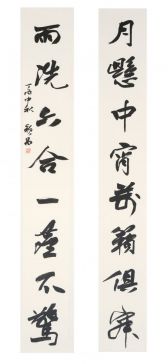 月懸中宵萬籟俱寂
雨洗六合一塵不驚
中秋